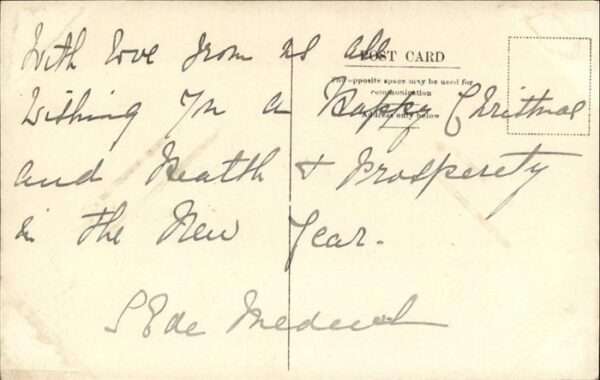 With love from us all
POST CARD
The opposite space may be used for
communication
Address only below
Wishing you a Happy Christmas
and Health & Prosperity
in the New Year.